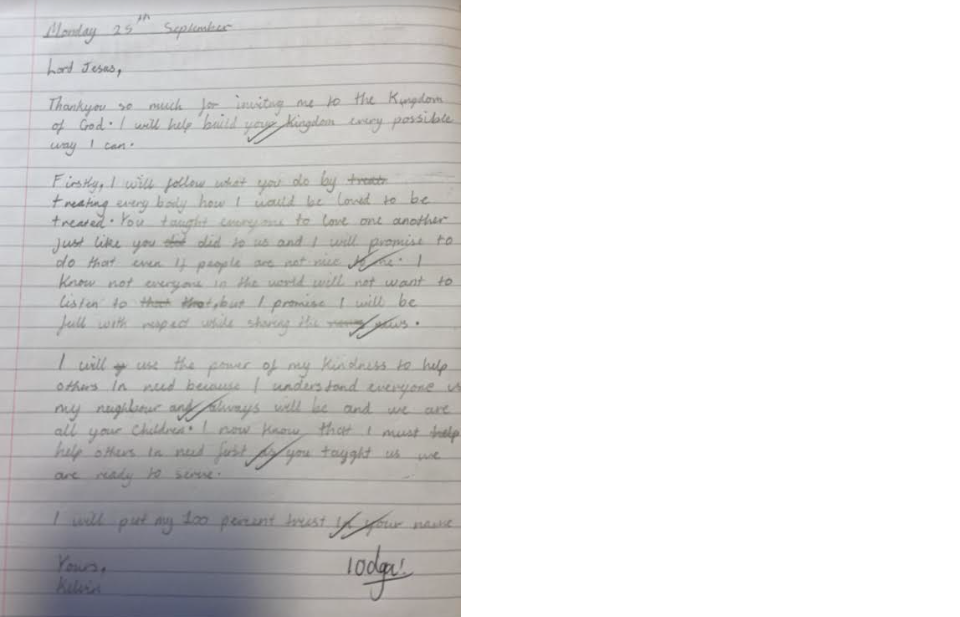 Monday 25th September
Lord Jesus,
Thankyou so much for inviting me to the Kingdom
of God. I will help build your Kingdom every possible
way I can.
Firstly, I will follow what you do by treat
treating every body how I would be loved to be
treated. You taught everyone to love one another
just like you did to us and I will promise to
do that even if people are not nice to me. I
know not everyone in the world will not want to
listen to that that, but I promise I will be
full with respect while sharing the news.
I will use the power of my kindness to help
others in need because I understand everyone is
my neighbour and always will be and we are
all your children. I now know that I must help
help others in need just as you taught us we
are ready to serve.
I will put my 100 percent trust in your name
Yours,
Kelvin